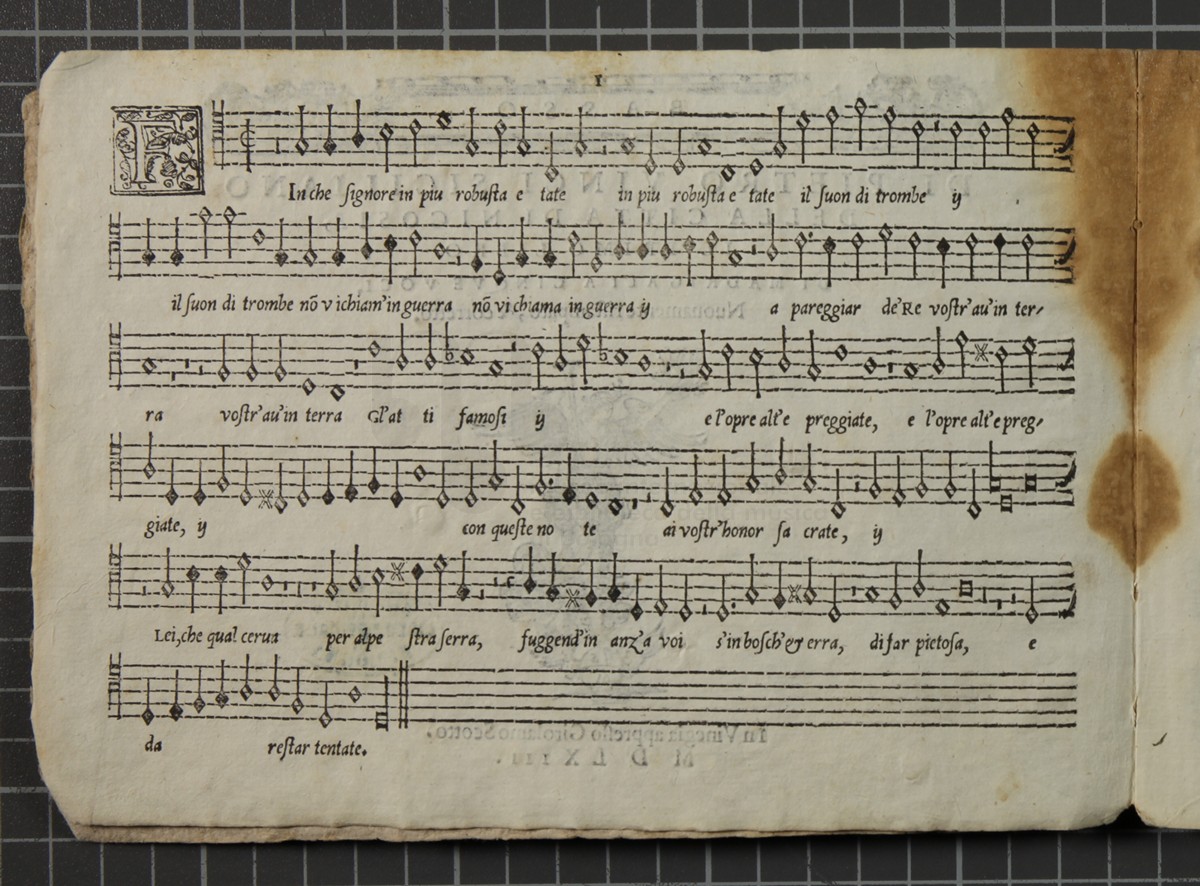 1
F In che signore in piu robusta e tate in piu robusta e tate il suon di trombe ij
il suon di trombe nō v ichiam'in guerra nō vi chiama in guerra ij a pareggiar de'Re vostr'au'in ter-
ra vostr'au'in terra Gl'at ti famosi ij e l'opre alt'e preggiate, e l'opre alt'e preg-
giate, ij con queste no te ai vostr'honor sa crate, ij
Lei, che qual cerua per alpe stra serra, fuggend'in anza voi s'in bosch'& erra, di far pietosa, e
da restar tentate.